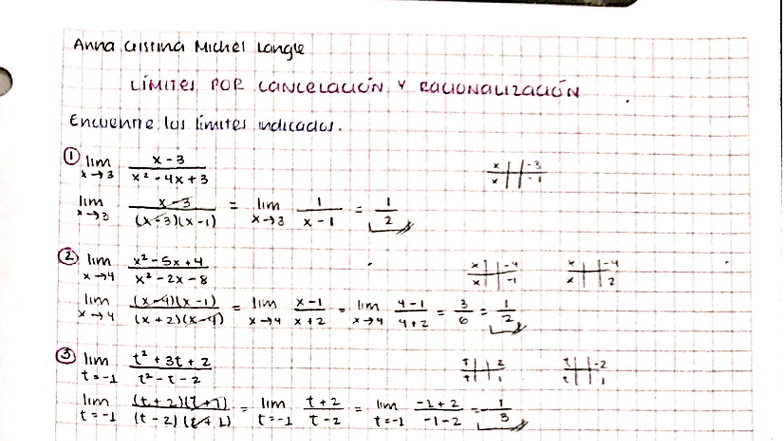 Anna Cristina Michel Langle
LÍMITES POR CANCELACIÓN Y RACIONALIZACIÓN
Encuentre los límites indicados.
① lim x→3 (x-3)/(x²-4x+3) x x | -3 -1
lim x→3 (x-3)/((x-3)(x-1)) = lim x→3 1/(x-1) = 1/2
② lim x→4 (x²-5x+4)/(x²-2x-8) x x | -4 -1 x x | -4 2
lim x→4 ((x-4)(x-1))/((x+2)(x-4)) = lim x→4 (x-1)/(x+2) = lim x→4 (4-1)/(4+2) = 3/6 = 1/2
③ lim t=-1 (t²+3t+2)/(t²-t-2) t t | 2 1 t t | -2 1
lim t=-1 ((t+2)(t+1))/((t-2)(t+1)) = lim t=-1 (t+2)/(t-2) = lim t=-1 (-1+2)/(-1-2) = -1/3